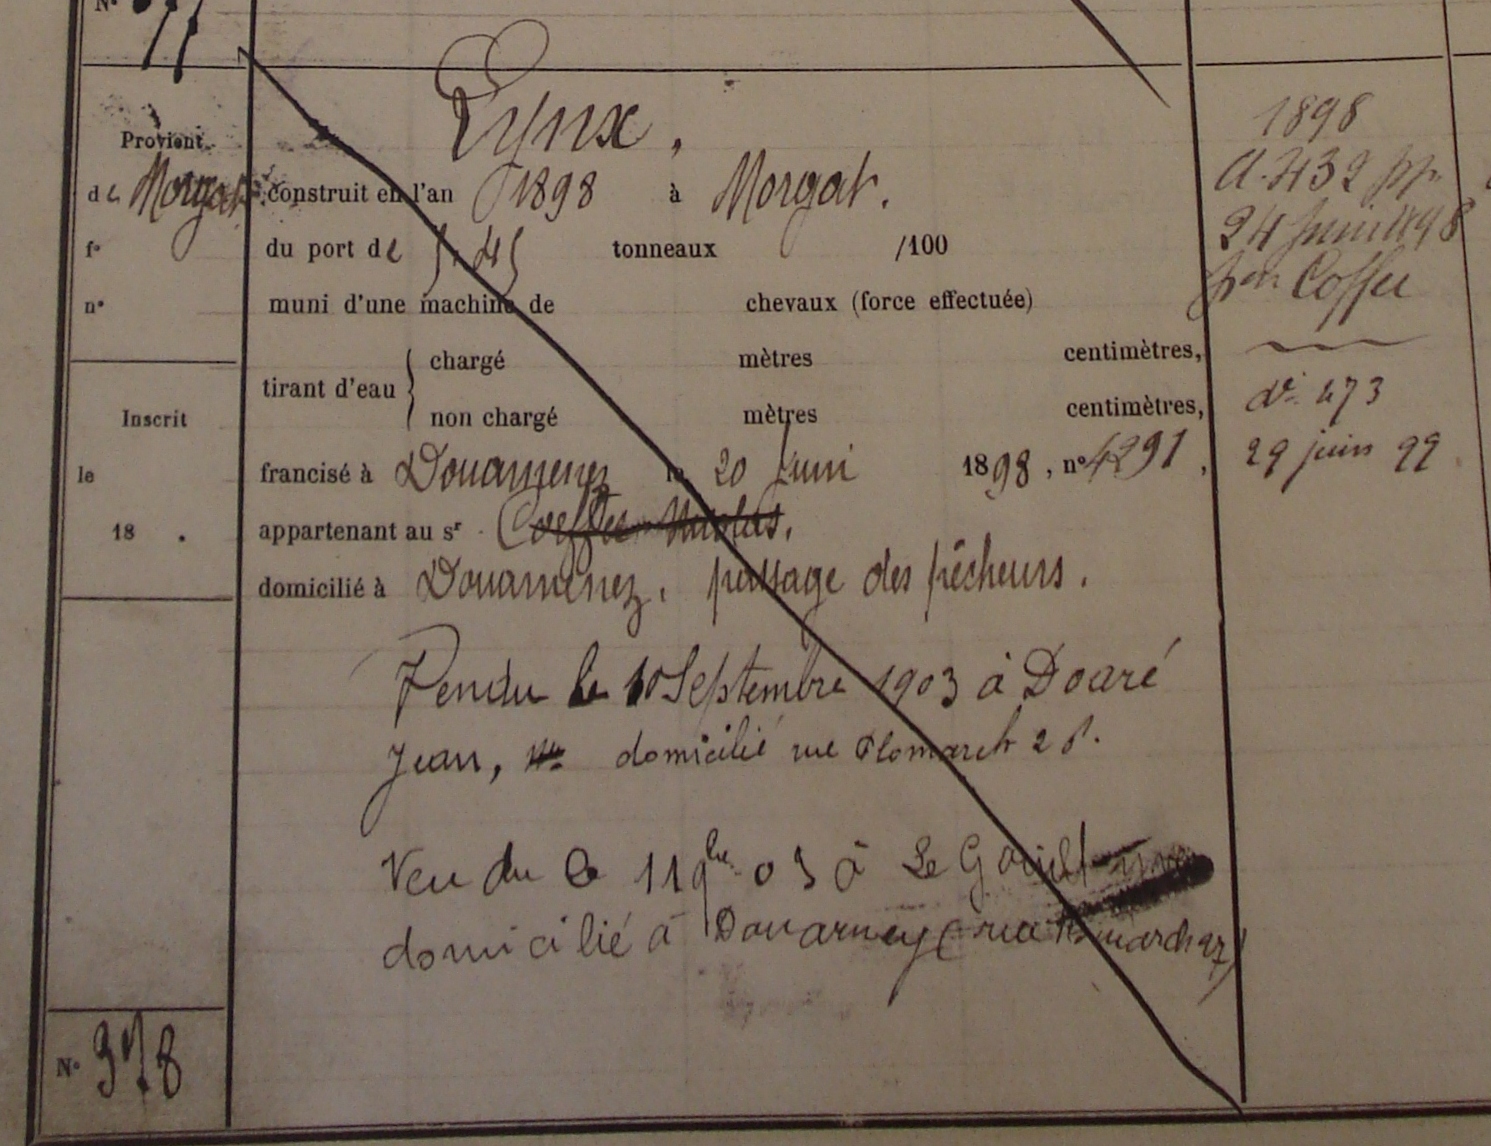 N°
Lynx.
Provient
de Morgat construit en l'an 1898 à Morgat.
f° du port de tonneaux /100
n° muni d'une machine de chevaux (force effectuée)
tirant d'eau { chargé mètres centimètres,
non chargé mètres centimètres,
Inscrit
le francisé à Douarnenez le 20 Juin 1898, n° 4291,
18 . appartenant au sr Coeffec Nicolas.
domicilié à Douarnenez, passage des pêcheurs.
Vendu le 10 Septembre 1903 à Doaré
Jean, domicilié rue Plomarch
Vendu le 11 9bre 03 à Le Goüill
domicilié à Douarnenez rue
N° 378
1898
a. 432
24 Juin 1898
par Coffec
d° 473
29 juin 99